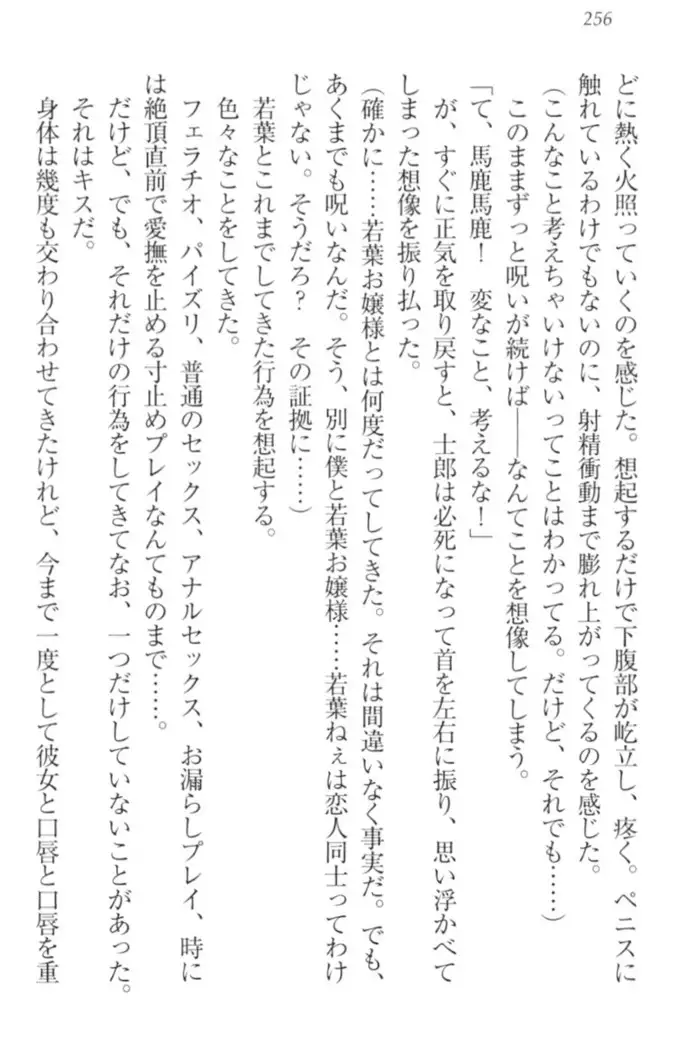 256
どに熱く火照っていくのを感じた。想起するだけで下腹部が屹立し、疼く。ペニスに
触れているわけでもないのに、射精衝動まで膨れ上がってくるのを感じた。
（こんなこと考えちゃいけないってことはわかってる。だけど、それでも……）
このままずっと呪いが続けば――なんてことを想像してしまう。
「て、馬鹿馬鹿！　変なこと、考えるな！」
が、すぐに正気を取り戻すと、士郎は必死になって首を左右に振り、思い浮かべて
しまった想像を振り払った。
（確かに……若葉お嬢様とは何度だってしてきた。それは間違いなく事実だ。でも、
あくまでも呪いなんだ。そう、別に僕と若葉お嬢様……若葉ねぇは恋人同士ってわけ
じゃない。そうだろ？　その証拠に……）
若葉とこれまでしてきた行為を想起する。
色々なことをしてきた。
フェラチオ、パイズリ、普通のセックス、アナルセックス、お漏らしプレイ、時に
は絶頂直前で愛撫を止める寸止めプレイなんてものまで……。
だけど、でも、それだけの行為をしてきてなお、一つだけしていないことがあった。
それはキスだ。
身体は幾度も交わり合わせてきたけれど、今まで一度として彼女と口唇と口唇を重